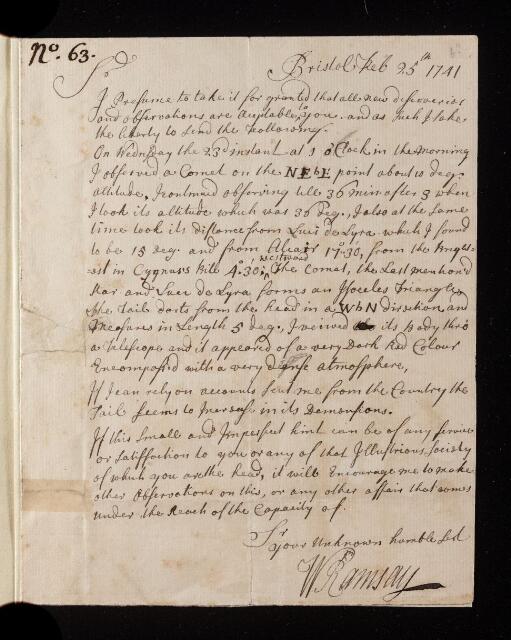 No. 63.
Bristol Feb 25th 1741
Sr
I Presume to take it for granted that all new discoveries
and observations are acceptable to you. and as such I take
the liberty to send the following.
On Wednesday the 23d instant at 1 o Clock in the morning
I observed a Comet on the NEbE point about 10 deg.
altitude, I continued observing till 36 min after 3 when
I took its altitude which was 30 deg., I also at the same
time took its distance from Luci de Lyra which I found
to be 15 deg. and from Alcair 17°.30, from the Bright
est in Cygnus's Bill 4°.30, westward The Comet, the Last mention'd
star and Luci de Lyra forms an Isoceles Triangle,
the Tail darts from the head in a WbN direction and
Measures in Length 5 deg. I veiwed its Body thro
a Telescope and it appeared of a very Dark Red Colour
Encompassed with a very dense atmosphere,
If I can rely on accounts sent me from the Country the
Tail seems to Increase in its Demensions.
If this Small and Imperfect hint can be of any service
or satisfaction to you or any of that Illustrious Society
of which you are the head, it will Encourage me to make
other Observations on this, or any other affair that comes
under the Reach of the Capacity of.
Sr
your Unknown humble
W Ramsay